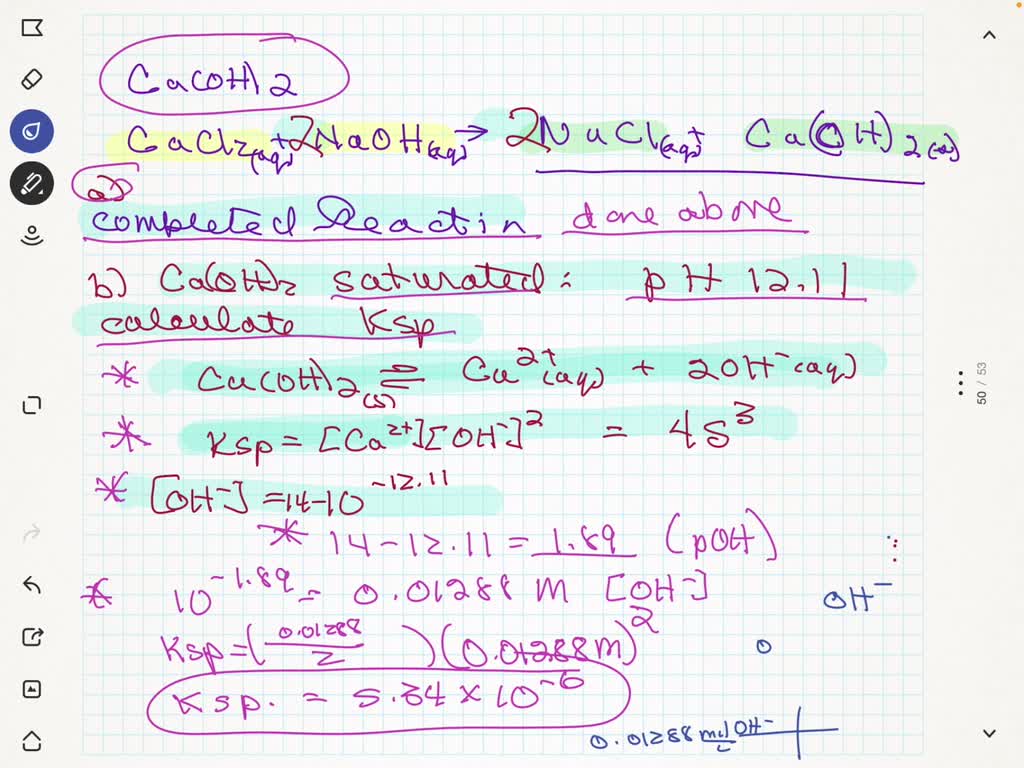 Ca(OH)2
CaCl2(aq) + 2NaOH(aq) → 2NaCl(aq) + Ca(OH)2(s)
a)
completed Reactin done above
b) Ca(OH)2 saturated: pH 12.11
calculate Ksp
* Ca(OH)2(s) ⇌ Ca2+(aq) + 2OH-(aq)
* Ksp = [Ca2+][OH-]2 = 4S3
* [OH-] = 14-10-12.11
* 14-12.11 = 1.89 (pOH)
* 10-1.89 = 0.01288 M [OH-]
OH-
Ksp = (0.01288/2)(0.01288M)2
0
Ksp. = 5.34 x 10-6
0.01288 mol OH-/L
50 / 53